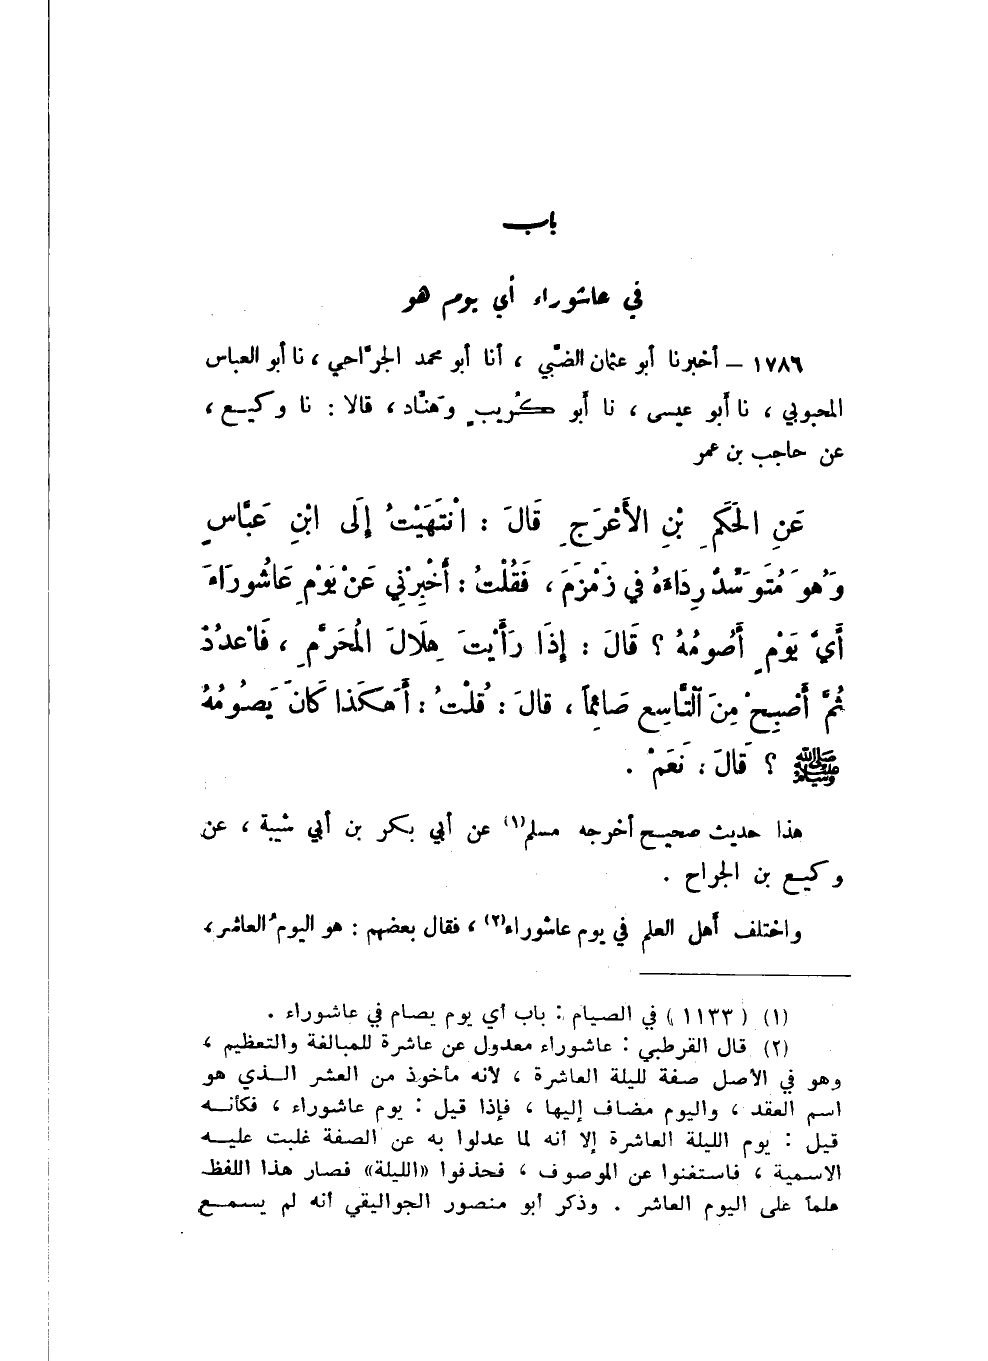 باب
في عاشوراء أي يوم هو
١٧٨٦ – أخبرنا أبو عثمان الضبّي ، أنا أبو محمد الجرّاحي ، نا أبو العباس
المحبوبي ، نا أبو عيسى ، نا أبو كُريبٍ وهنّاد ، قالا : نا وكيع ،
عن حاجب بن عمر
عَنِ الحَكَمِ بْنِ الأَعْرَجِ قَالَ : انْتَهَيْتُ إِلَى ابْنِ عَبَّاسٍ
وَهُوَ مُتَوَسِّدٌ رِدَاءَهُ في زَمْزَمَ ، فَقُلْتُ : أَخْبِرْني عَنْ يَوْمِ عَاشُورَاءَ
أَيَّ يَوْمٍ أَصُومُهُ ؟ قَالَ : إِذَا رَأَيْتَ هِلَالَ المُحَرَّمِ ، فَاعْدُدْ
ثُمَّ أَصْبِحْ مِنَ التَّاسِعِ صَائِماً ، قالَ : قُلْتُ : أَهكَذا كَانَ يَصُومُهُ
ﷺ ؟ قَالَ : نَعَمْ .
هذا حديث صحيح أخرجه مسلم(١) عن أبي بكر بن أبي شيبة ، عن
وكيع بن الجراح .
واختلف أهل العلم في يوم عاشوراء(٢) ، فقال بعضهم : هو اليومُ العاشر ،
(١) ( ١١٣٣ ) في الصيام : باب أي يوم يصام في عاشوراء .
(٢) قال القرطبي : عاشوراء معدول عن عاشرة للمبالغة والتعظيم ،
وهو في الأصل صفة لليلة العاشرة ، لأنه مأخوذ من العشر الذي هو
اسم العقد ، واليوم مضاف إليها ، فإذا قيل : يوم عاشوراء ، فكأنه
قيل : يوم الليلة العاشرة إلا أنه لما عدلوا به عن الصفة غلبت عليه
الاسمية ، فاستغنوا عن الموصوف ، فحذفوا «الليلة» فصار هذا اللفظ
علماً على اليوم العاشر . وذكر أبو منصور الجواليقي أنه لم يسمع